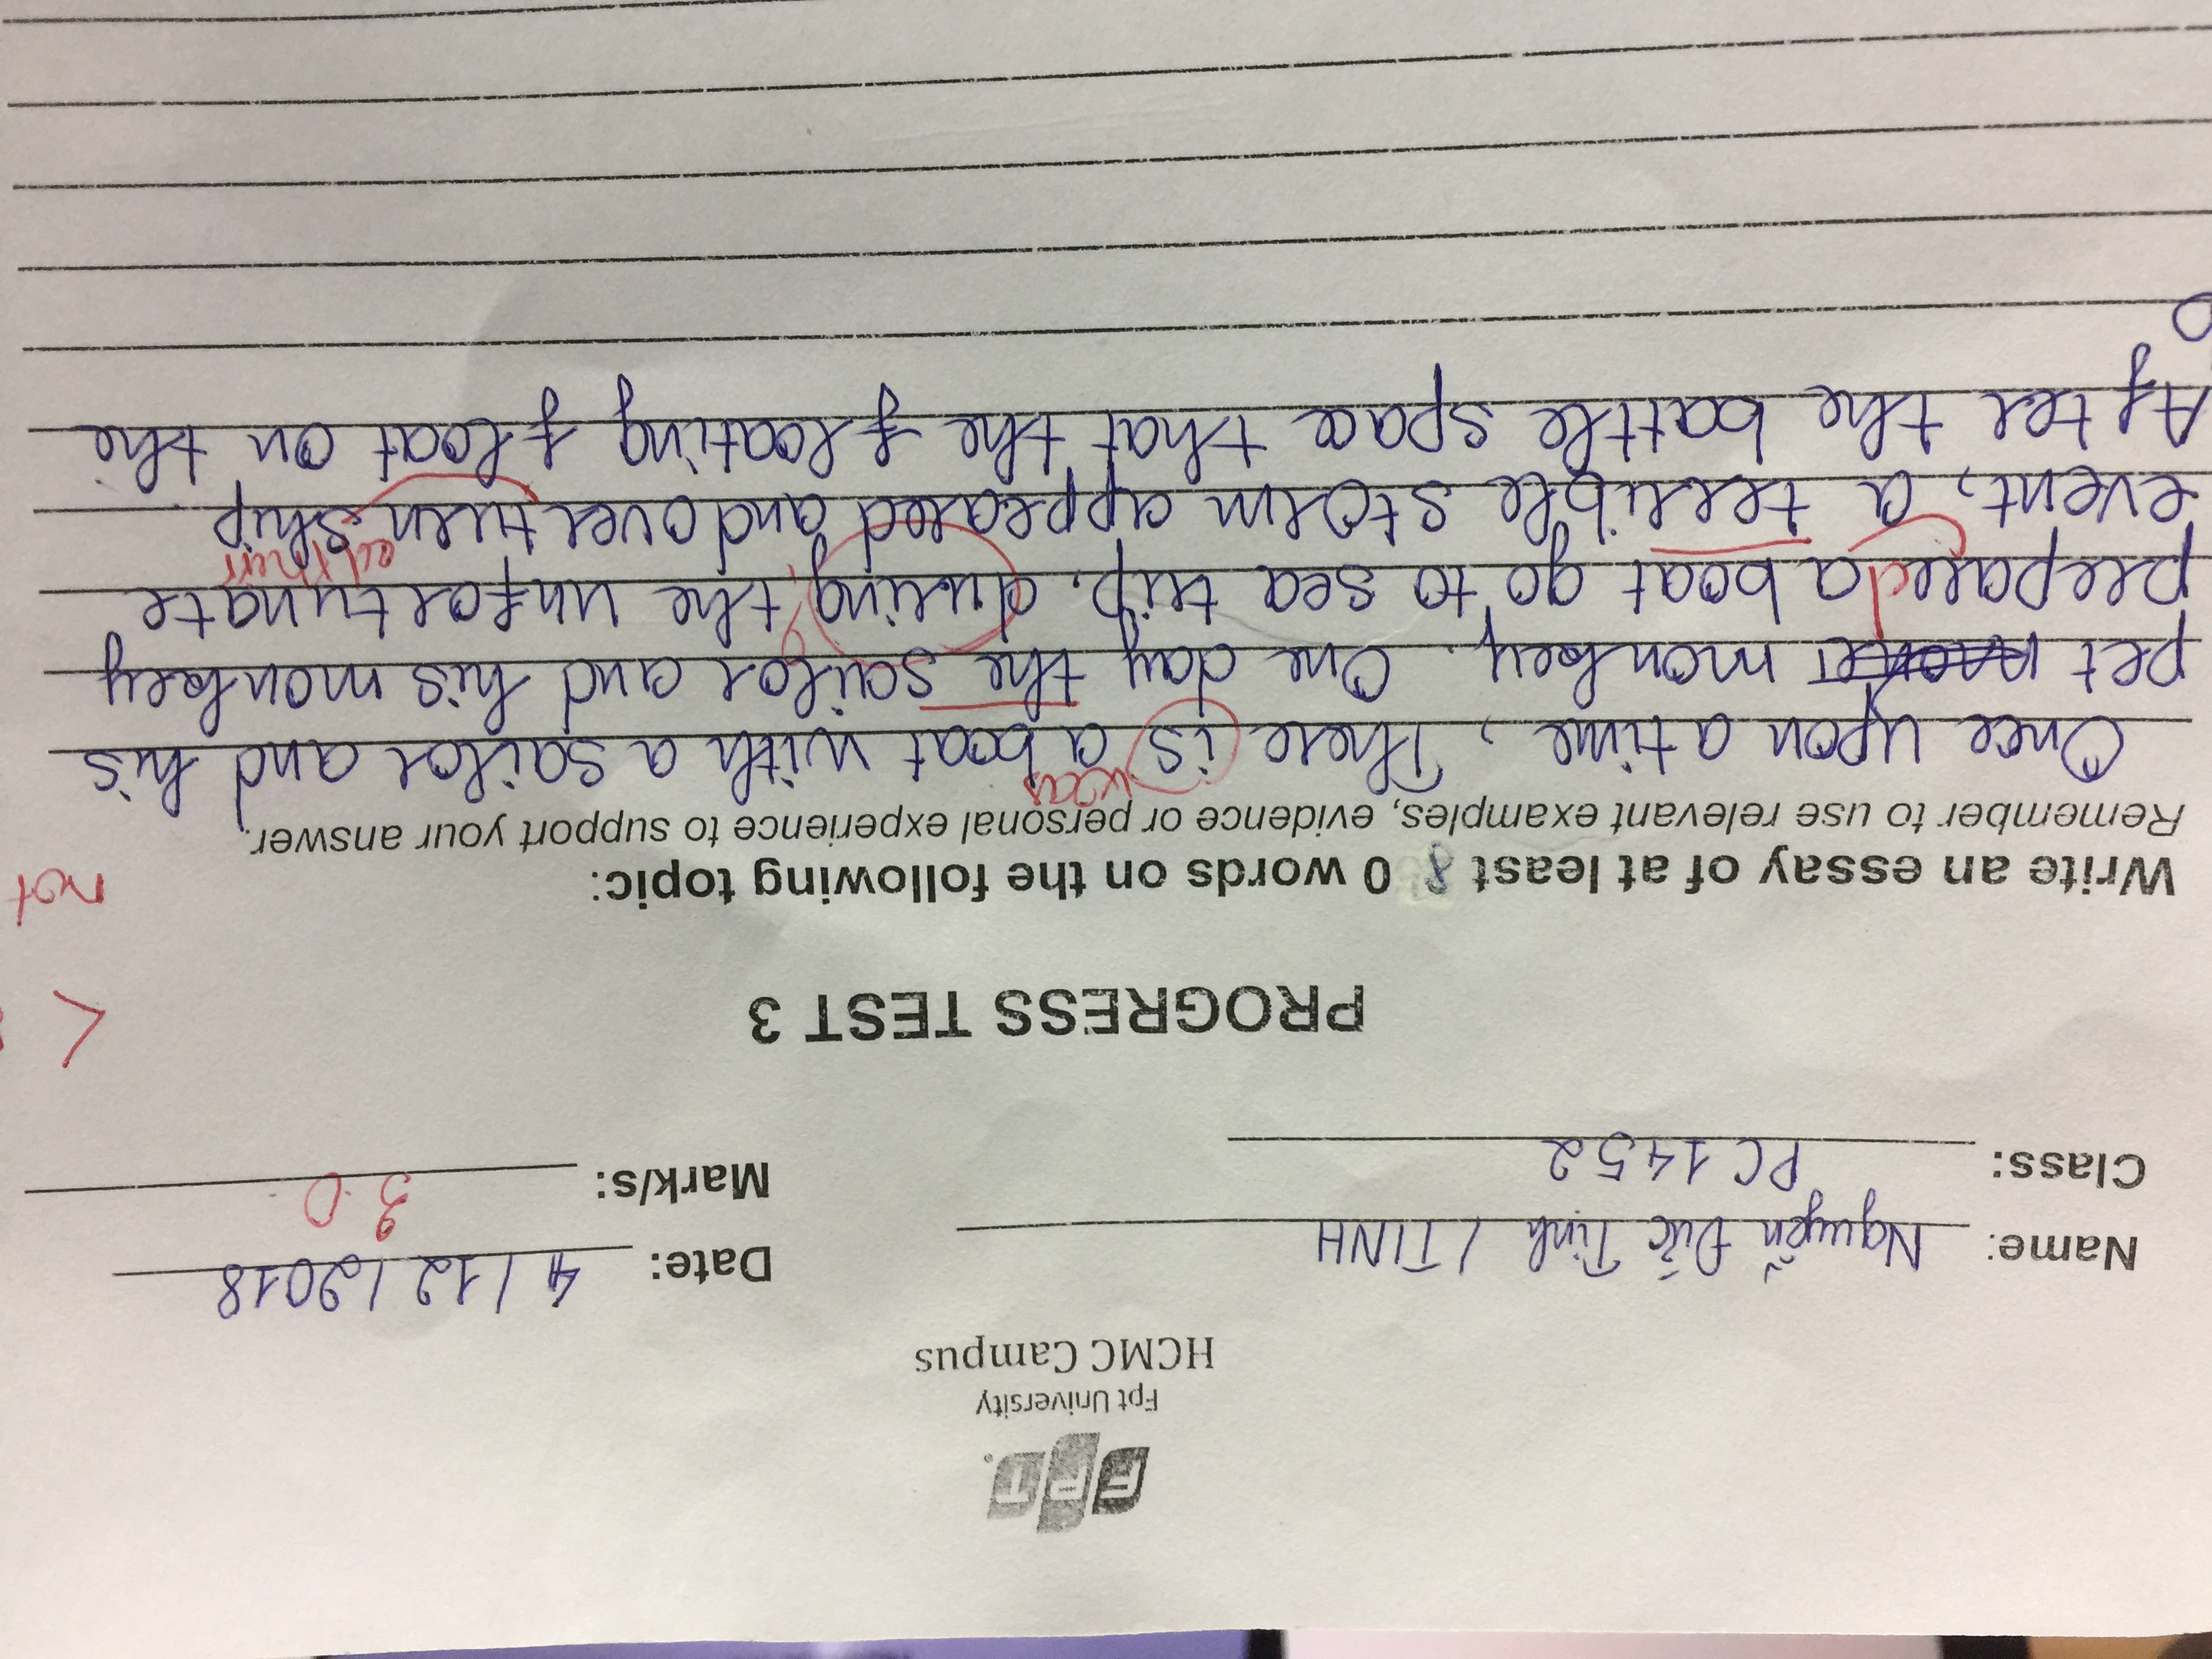 FPT.
Fpt University
HCMC Campus
Name: Nguyễn Đức Tịnh / TINH
Date: 4/12/2018
Class: PC1452
Mark/s: 3.0
PROGRESS TEST 3
<
Write an essay of at least 80 words on the following topic:
not
Remember to use relevant examples, evidence or personal experience to support your answer.
was
Once upon a time, There is a boat with a sailor and his
pet monkey. One day the sailor and his monkey
prepared a boat go to sea trip. during ? the unfortunate
ed their
event, a terrible storm appeared and overturn ship
After the battle space that the floating float on the